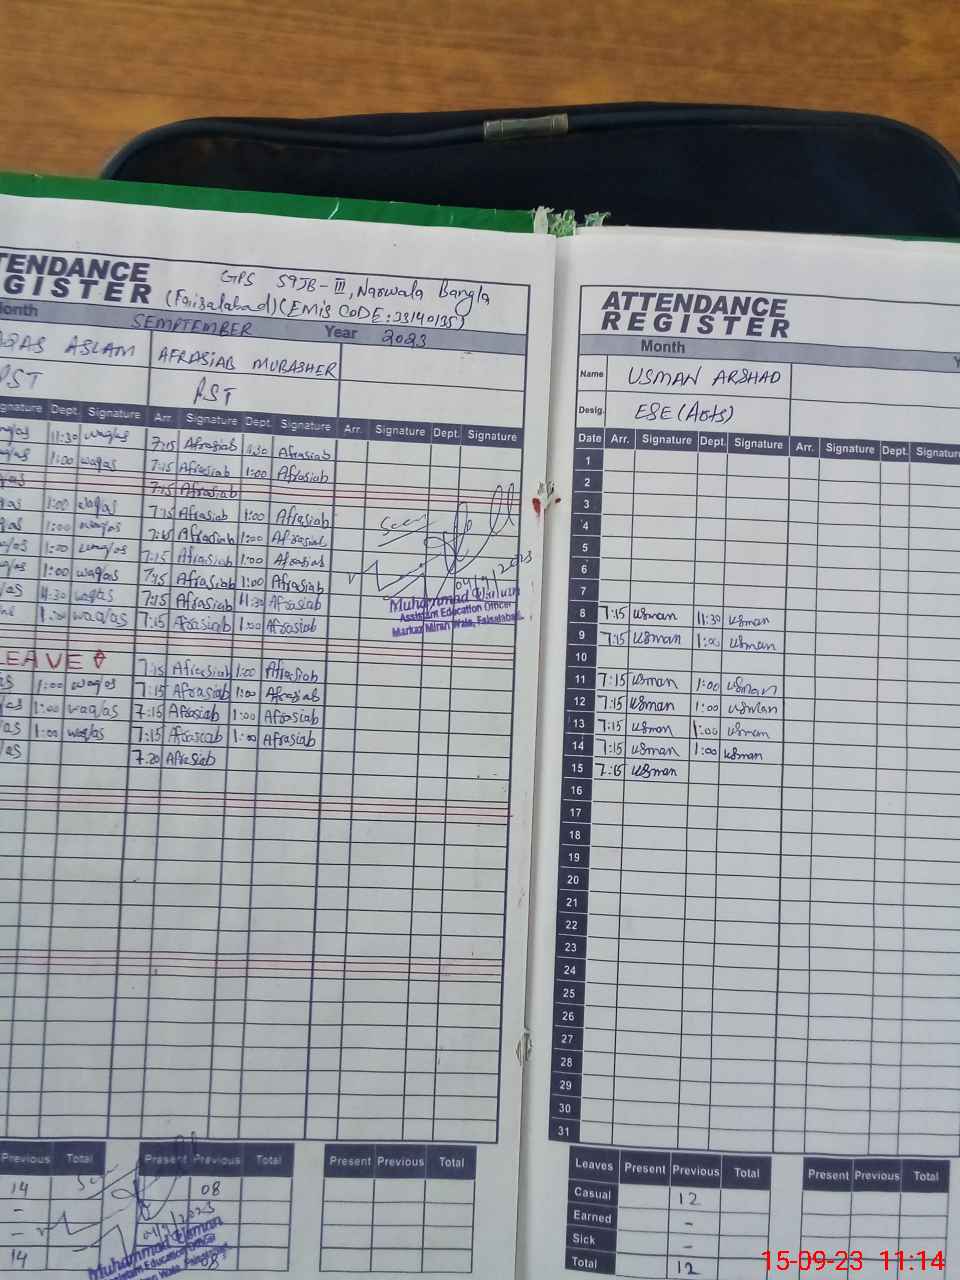 TENDANCE
GISTER
GPS 59JB-III, Narwala Bangla
(Faisalabad)(EMIS CODE: 33140135)
onth SEMPTEMBER Year 2023
AQAS ASLAM AFRASIAB MUBASHER
PST PST
gnature Dept. Signature Arr. Signature Dept. Signature Arr. Signature Dept. Signature
11:30 waqas 7:15 Afrasiab 11:30 Afrasiab
1:00 waqas 7:15 Afrasiab 1:00 Afrasiab
7:15 Afrasiab
1:00 waqas 7:15 Afrasiab 1:00 Afrasiab
1:00 waqas 7:15 Afrasiab 1:00 Afrasiab
1:00 waqas 7:15 Afrasiab 1:00 Afrasiab
1:00 waqas 7:15 Afrasiab 1:00 Afrasiab
11:30 waqas 7:15 Afrasiab 11:30 Afrasiab
1:00 waqas 7:15 Afrasiab 1:00 Afrasiab
LEAVE 7:15 Afrasiab 1:00 Afrasiab
1:00 waqas 7:15 Afrasiab 1:00 Afrasiab
1:00 waqas 7:15 Afrasiab 1:00 Afrasiab
1:00 waqas 7:15 Afrasiab 1:00 Afrasiab
7:20 Afrasiab
Seen
04/9/2023
Muhammad
Assistant Education Officer
Markaz Miran Wala, Faisalabad.
Previous Total Present Previous Total Present Previous Total
14 08
-
-
14 08
04/9/2023
Muhammad
Assistant Education Officer
Wala, Faisalabad
ATTENDANCE
REGISTER
Month
Name USMAN ARSHAD
Desig. ESE (Arts)
Date Arr. Signature Dept. Signature Arr. Signature Dept. Signature
1
2
3
4
5
6
7
8 7:15 usman 11:30 usman
9 7:15 usman 1:00 usman
10
11 7:15 usman 1:00 usman
12 7:15 usman 1:00 usman
13 7:15 usman 1:00 usman
14 7:15 usman 1:00 usman
15 7:15 usman
16
17
18
19
20
21
22
23
24
25
26
27
28
29
30
31
Leaves Present Previous Total Present Previous Total
Casual 12
Earned -
Sick -
Total 12
15-09-23 11:14